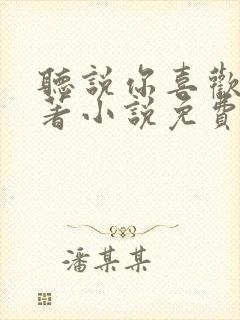 聽說你喜歡
著小說免費
潘某某